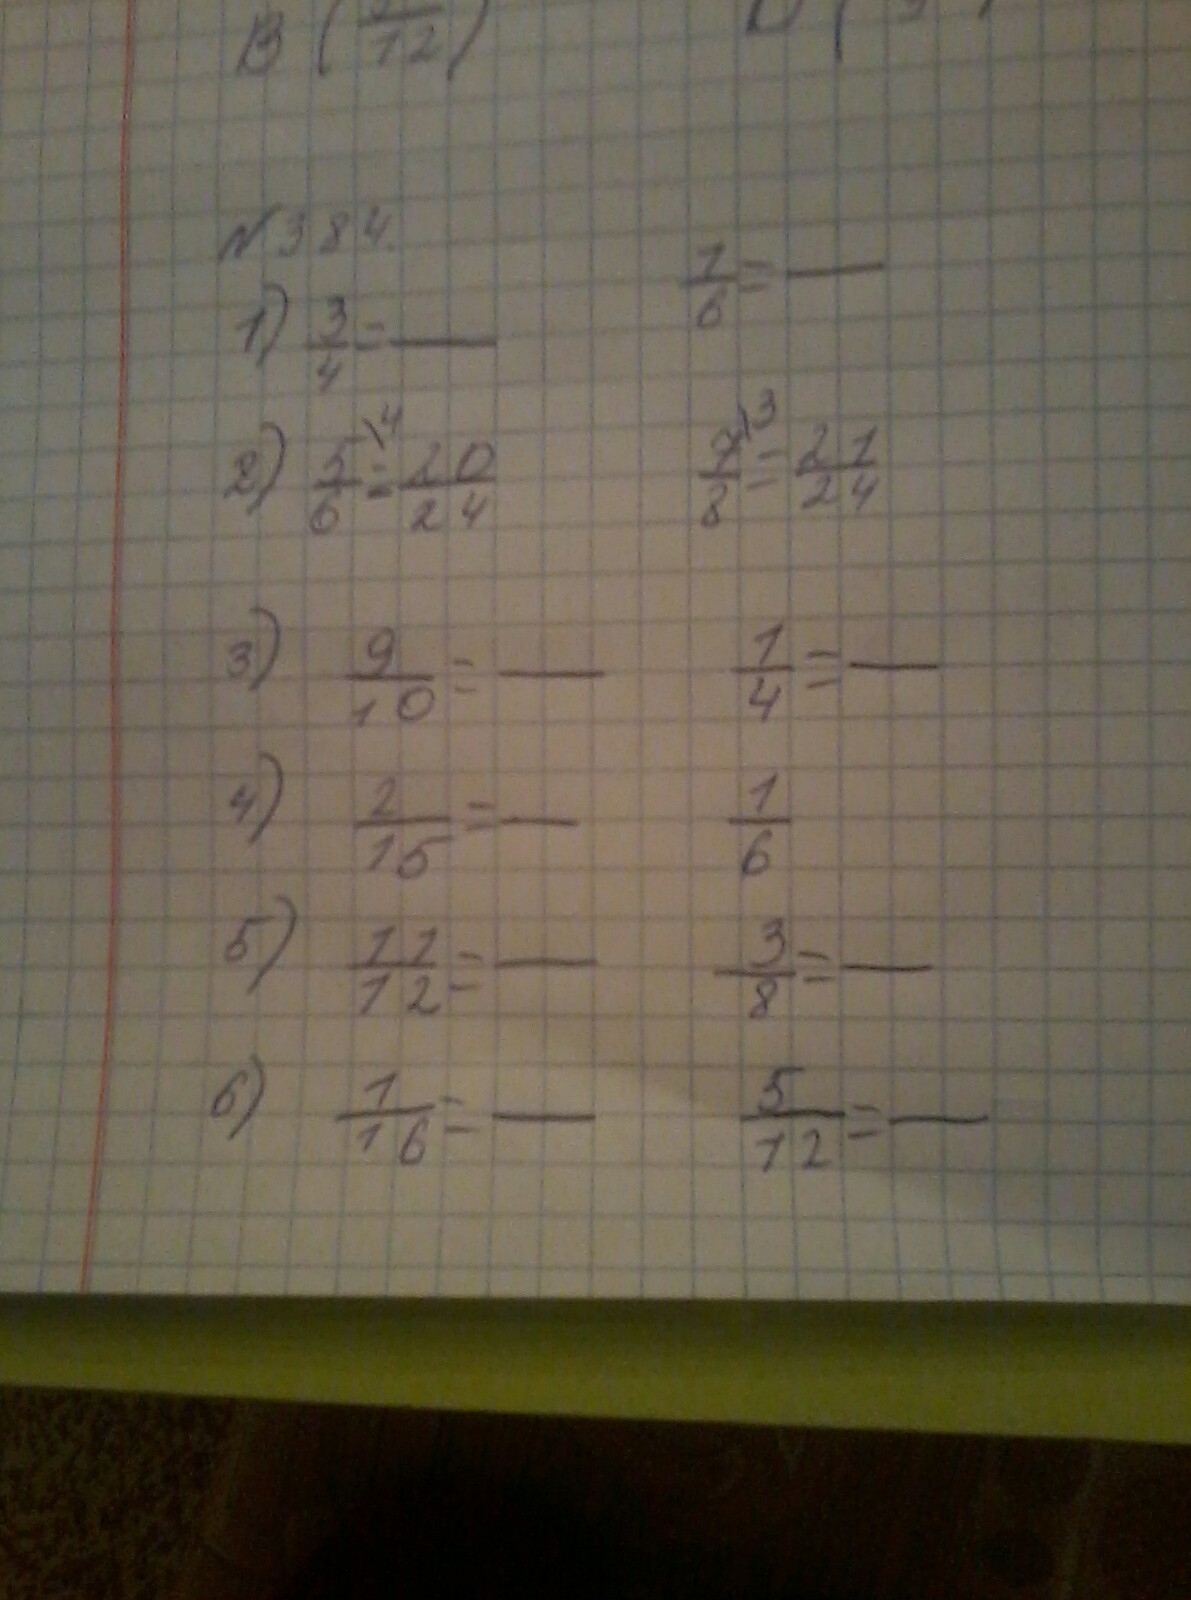 B ( /12)
№384.
1) 3/4 = —   1/6 = —
2) 5/6 \4 = 20/24   7/8 \3 = 21/24
3) 9/10 = —   1/4 = —
4) 2/15 = —   1/6
5) 11/12 = —   3/8 = —
6) 1/16 = —   5/12 = —